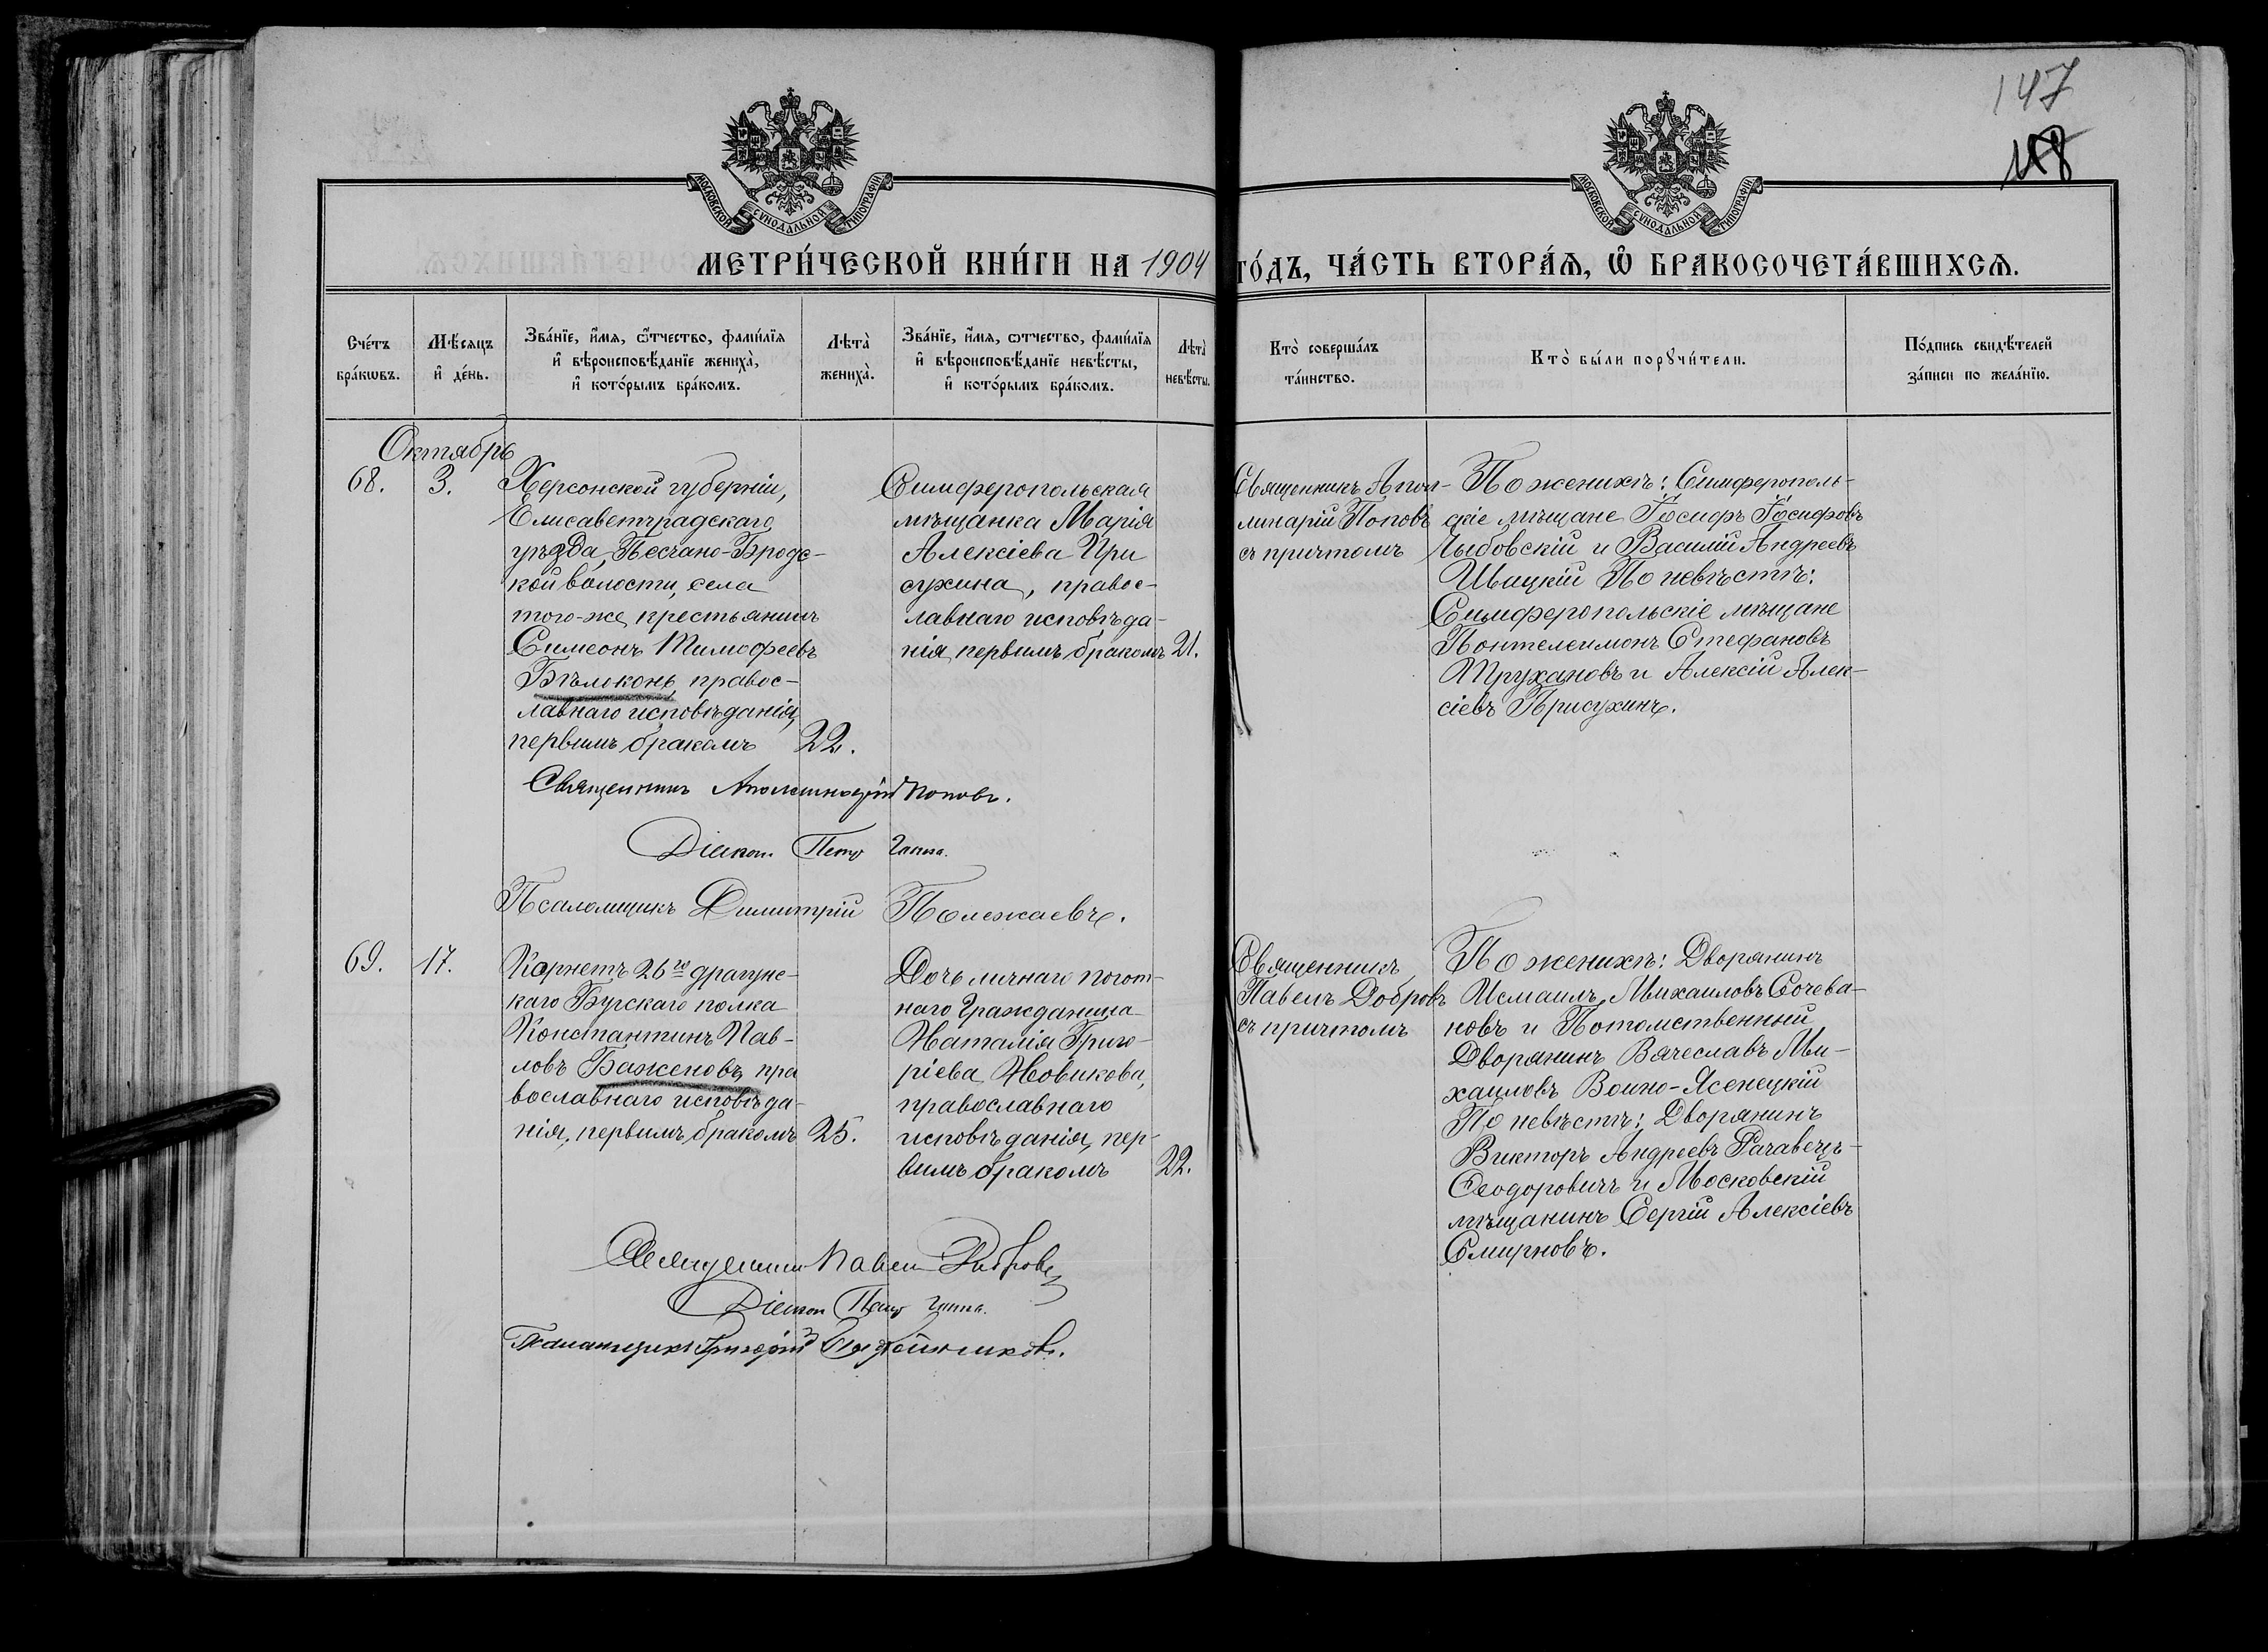 147
118
МОСКОВСКОЙ СѴНОДАЛЬНОЙ ТИПОГРАФІИ
МОСКОВСКОЙ СѴНОДАЛЬНОЙ ТИПОГРАФІИ
МЕТРИ́ЧЕСКОЙ КНИ́ГИ НА 1904 ГО́ДЪ, ЧА́СТЬ ВТОРА́Ѧ, Ѽ БРАКОСОЧЕТА́ВШИХСѦ.
Сче́тъ
бра́кѡвъ.
Мѣ́сяцъ
и҆ де́нь.
Зва́нїе, и҆́мя, ѻ҆́тчество, фамѝлїя
и҆ вѣроисповѣ́данїе жениха̀,
и҆ кото́рымъ бра́комъ.
Лѣта̀
жениха̀.
Зва́нїе, и҆́мя, ѻтчество, фамѝлїя
и҆ вѣроисповѣ́данїе невѣ́сты,
и҆ кото́рымъ бра́комъ.
Лѣта̀
невѣ́сты.
Кто̀ соверша́лъ
та́инство.
Кто̀ бы́ли порꙋчи́тели.
По́дпись свидѣ́телей
за́писи по жела́нїю.
Октябрь
68.
3.
Херсонской губерніи,
Елисаветградскаго
уѣзда, Песчано-Бродс-
кой волости, села
того-же, крестьянинъ
Симеонъ Тимофеевъ
Бѣлоконь, правос-
лавнаго исповѣданія,
первымъ бракомъ
22.
Симферопольская
мѣщанка Марія
Алексіева При
сухина, правос-
лавнаго исповѣда-
нія, первымъ бракомъ
21.
Священникъ Апол-
линарій Поповъ
съ причтомъ
По женихѣ: Симферополь-
скіе мѣщане Іосифъ Іосифовъ
Чыбовскій и Василій Андреевъ
Ивицкій По невѣстѣ:
Симферопольскіе мѣщане
Понтелеимонъ Стефановъ
Трухановъ и Алексій Алек-
сіевъ Присухинъ.
Священникъ Аполлинарій Поповъ.
Діаконъ Петръ
Псаломщикъ Димитрій Полежаевъ.
69.
17.
Корнетъ 26го драгунс-
каго Бугскаго полка
Константинъ Пав-
ловъ Баженовъ, пра
вославнаго исповѣда-
нія, первымъ бракомъ
25.
Дочь личнаго почот-
наго Гражданина
Наталія Григо-
ріева Новикова,
православнаго
исповѣданія, пер-
вымъ бракомъ
22.
Священникъ
Павелъ Добровъ
съ причтомъ
По женихѣ: Дворянинъ
Исмаилъ Михаиловъ Сочева-
новъ и Потомственный
Дворянинъ Вячеславъ Ми-
хаиловъ Воино-Ясенецкій
По невѣстѣ: Дворянинъ
Викторъ Андреевъ
Ѳеодоровичъ и Московскій
мѣщанинъ Сергій Алексіевъ
Смирновъ.
Священникъ Павелъ Добровъ
Діаконъ Петръ
Псаломщикъ Григорій